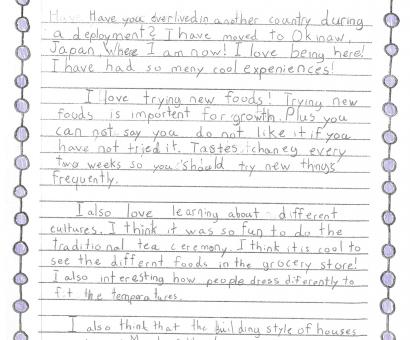 Have Have you ever lived in another country during
a deployment? I have moved to Okinaw,
Japan, Where I am now! I love being here!
I have had so meny cool expeniences!
I love trying new foods! Trying new
foods is importent for growth. Plus you
can not say you do not like it if you
have not tried it. Tastes chaney every
two weeks so you should try new thngs
frequently.
I also love learning about different
cultures. I think it was so fun to do the
traditional tea ceremony. I think it is cool to
see the differnt foods in the grocery store!
I also interesting how people dress diferently to
fit the temperatures.
I also think that the building style of houses